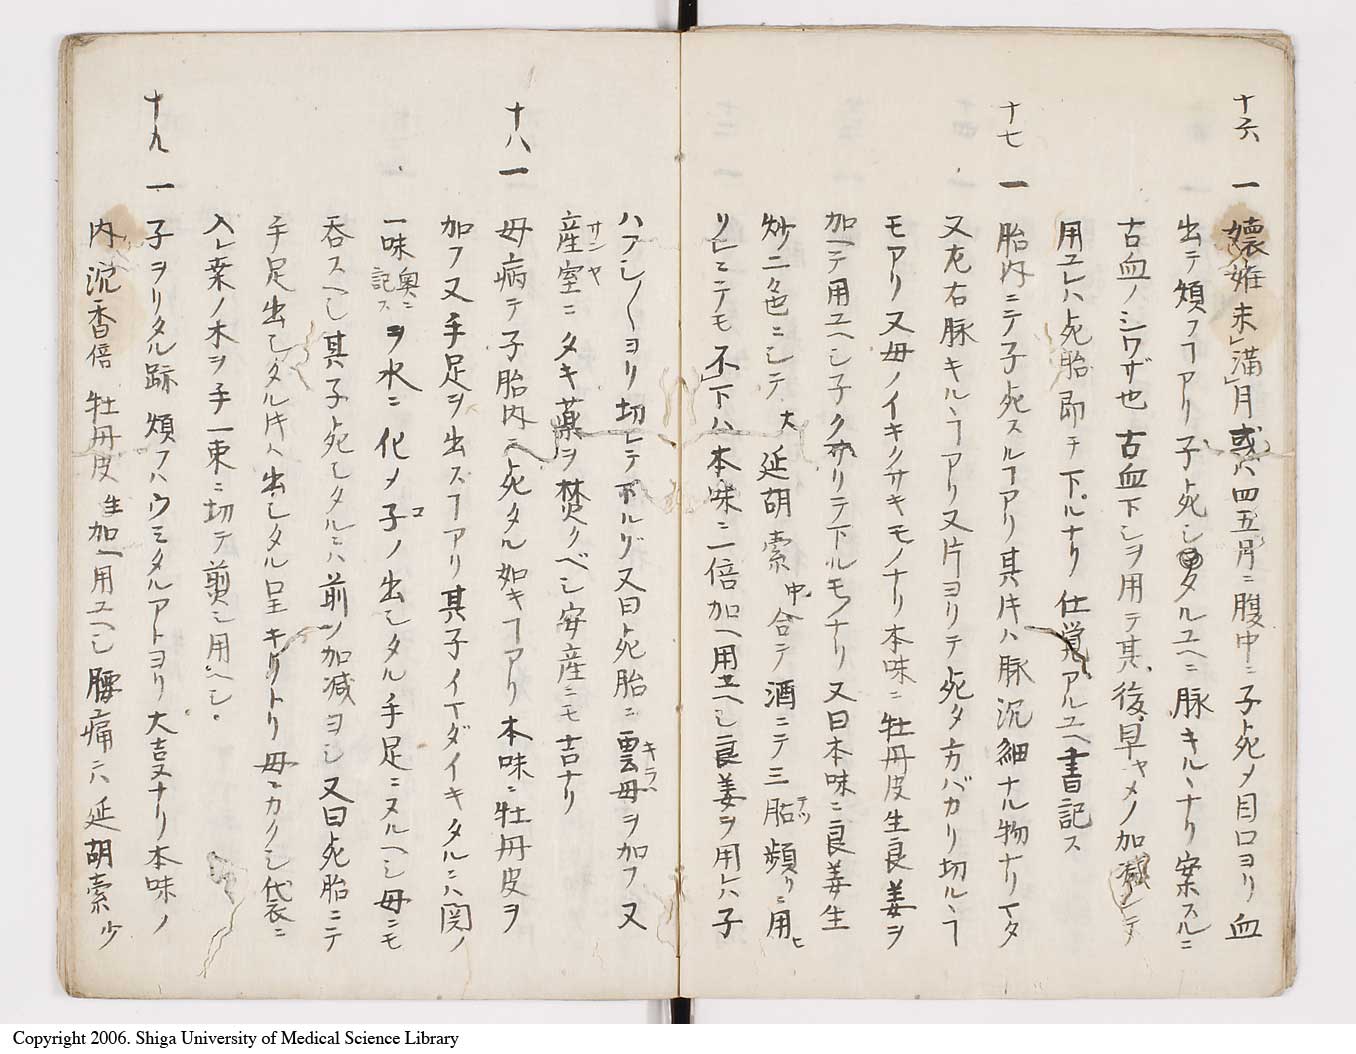 十六 一 懐姙未満月或ハ四五月ニ腹中ニ子死メ目口ヨリ血
出テ煩フヿアリ子死シタルユヘニ脉キルヽナリ案スルニ
古血ノシワザ也古血下シヲ用テ其後早ヤメノ加減シテ
用ユレハ死胎即チ下ルナリ仕覚アルユヘ書記ス
十七 一 胎内ニテ子死スルヿアリ其片ハ脉沉細ナル物ナリイタ
又左右脉キルヽヿアリ又片ヨリテ死タ方バカリ切ルヽヿ
モアリ又母ノイキクサキモノナリ本味ニ牡丹皮生良姜ヲ
加ヘテ用ユヘシ子クサリテ下ルモノナリ又曰本味ニ良姜生
炒二色ニシテ大延胡索中合テ酒ニテ三貼テツ頻リニ用ヒ
リトニテモ不下ハ本味ニ一倍加ヘ用ユヘシ良姜ヲ用レハ子
ハアシ〳〵ヨリ切レテ下ルゾ又曰死胎ニ雲母キラヽヲ加フ又
産室サンヤニタキ薬ヲ焚クベシ安産ニモ吉ナリ
十八 一 母病テ子胎内ニ死タル如キヿアリ本味ニ牡丹皮ヲ
加フ又手足ヲ出スヿアリ其子イマダイキタルニハ関ノ
一味奥ニ記スヲ水ニ化メ子コノ出シタル手足ニヌルヘシ母ニモ
呑スヘシ其子死シタルニハ前ノ加減ヨシ又曰死胎ニテ
手足出シタル片ハ出シタル呈キリトリ母ニカクシ袋ニ
入レ桒ノ木ヲ手一束ニ切テ煎シ用ヘシ
十九 一 子ヲリタル跡煩フハウミタルアトヨリ大吉ナリ本味ノ
内沉香倍牡丹皮生加ヘ用ユヘシ腰痛ニハ延胡索少